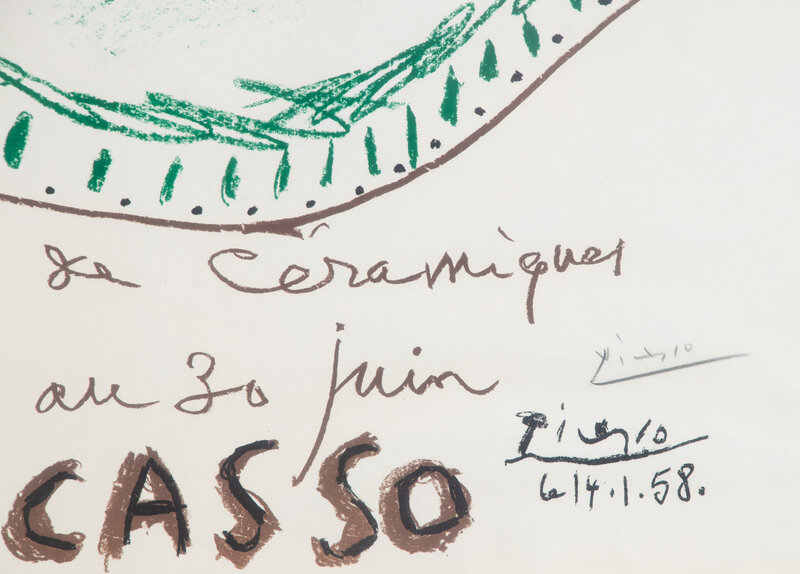 de céramiques
au 30 juin
Picasso
Picasso
CASSO
le 14.1.58.